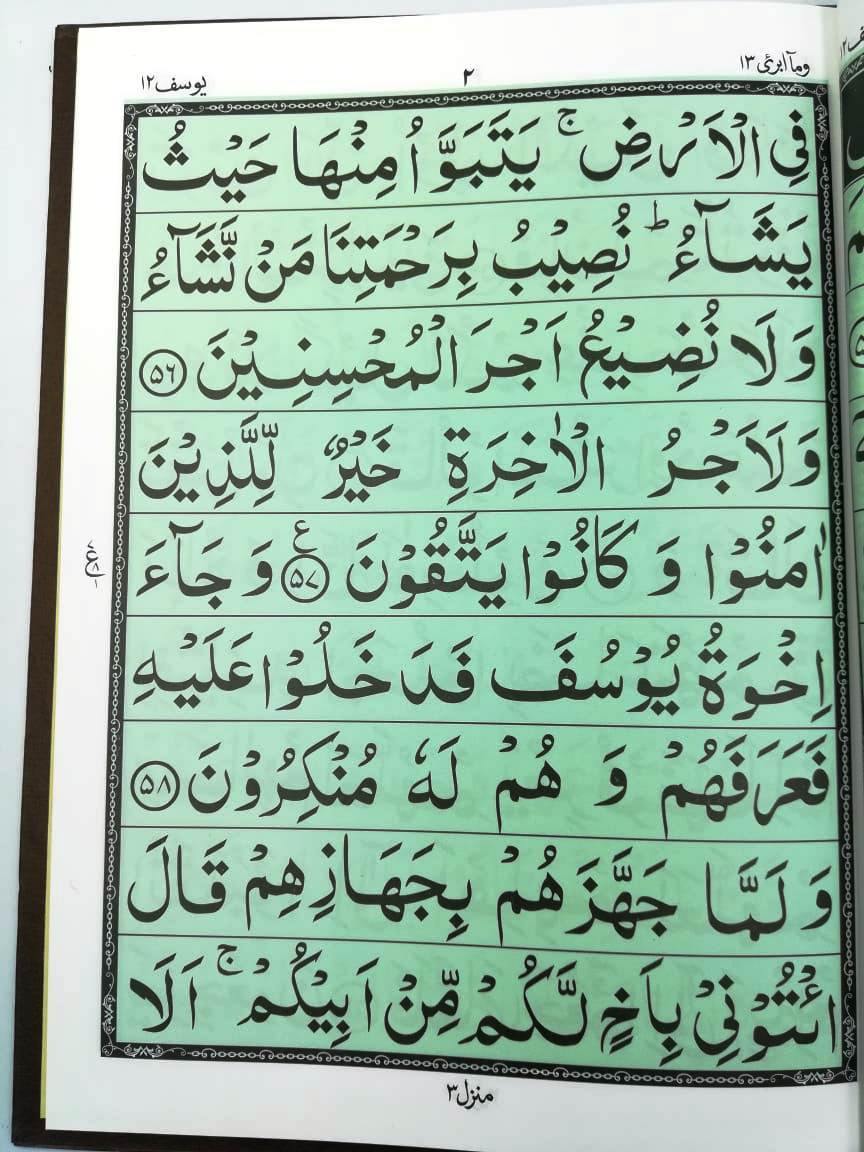 وما ابرئ ۱۳
۲
یوسف ۱۲
فِی الۡاَرۡضِ ۚ یَتَبَوَّاُ مِنۡهَا حَیۡثُ
یَشَآءُ ؕ نُصِیۡبُ بِرَحۡمَتِنَا مَنۡ نَّشَآءُ
وَلَا نُضِیۡعُ اَجۡرَ الۡمُحۡسِنِیۡنَ ۵۶
وَلَاَجۡرُ الۡاٰخِرَةِ خَیۡرٌ لِّلَّذِیۡنَ
اٰمَنُوۡا وَ کَانُوۡا یَتَّقُوۡنَ ۵۷ ع وَ جَآءَ
اِخۡوَةُ یُوۡسُفَ فَدَخَلُوۡا عَلَیۡهِ
فَعَرَفَهُمۡ وَ هُمۡ لَهٗ مُنۡکِرُوۡنَ ۵۸
وَ لَمَّا جَهَّزَهُمۡ بِجَهَازِهِمۡ قَالَ
ائۡتُوۡنِیۡ بِاَخٍ لَّکُمۡ مِّنۡ اَبِیۡکُمۡ ۚ اَلَا
منزل ۳